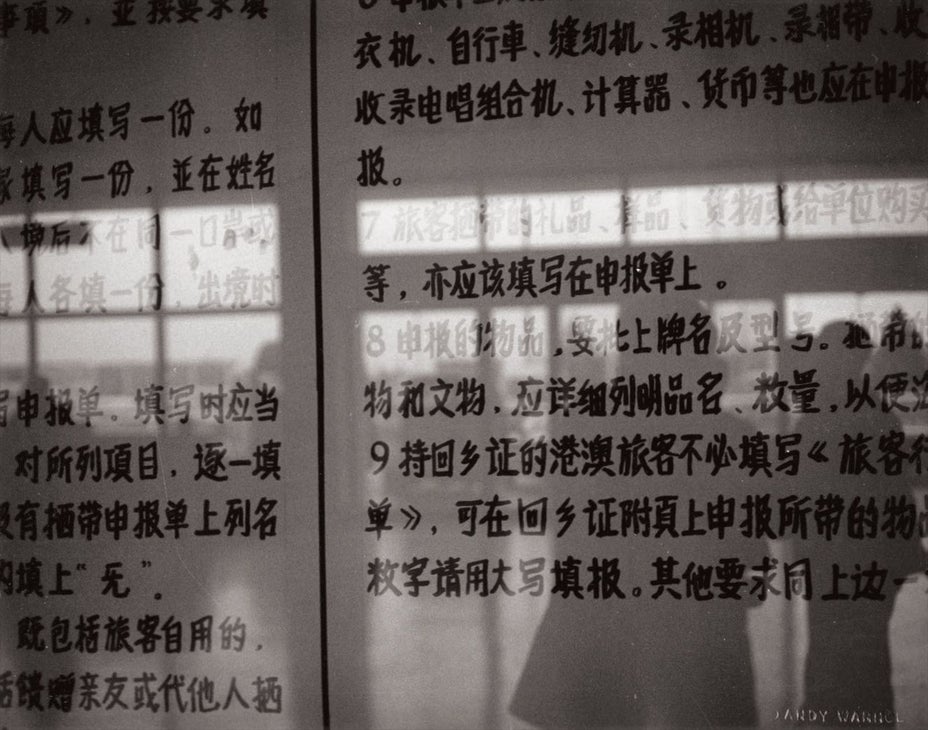 事項》，並按要求填
每人应填写一份。如
家填写一份，並在姓名
（境后）不在同一口岸或
每人各填一份，出境时
写申报单。填写时应当
对所列項目，逐一填
没有捎带申报单上列名
的填上“无”．
既包括旅客自用的，
括馈赠亲友或代他人捎
衣机、自行車、缝纫机、录相机、录相带、收
收录电唱组合机、计算器、货币等也应在申报
报。
7 旅客捎带的礼品、样品、货物或给单位购买
等，亦应该填写在申报单上。
8 申报的物品，要批上牌名及型号。捎带的
物和文物，应详细列明品名、数量，以便海
9 持回乡证的港澳旅客不必填写《旅客行
单》，可在回乡证附頁上申报所带的物品
数字请用大写填报。其他要求同上边一
ANDY WARHOL